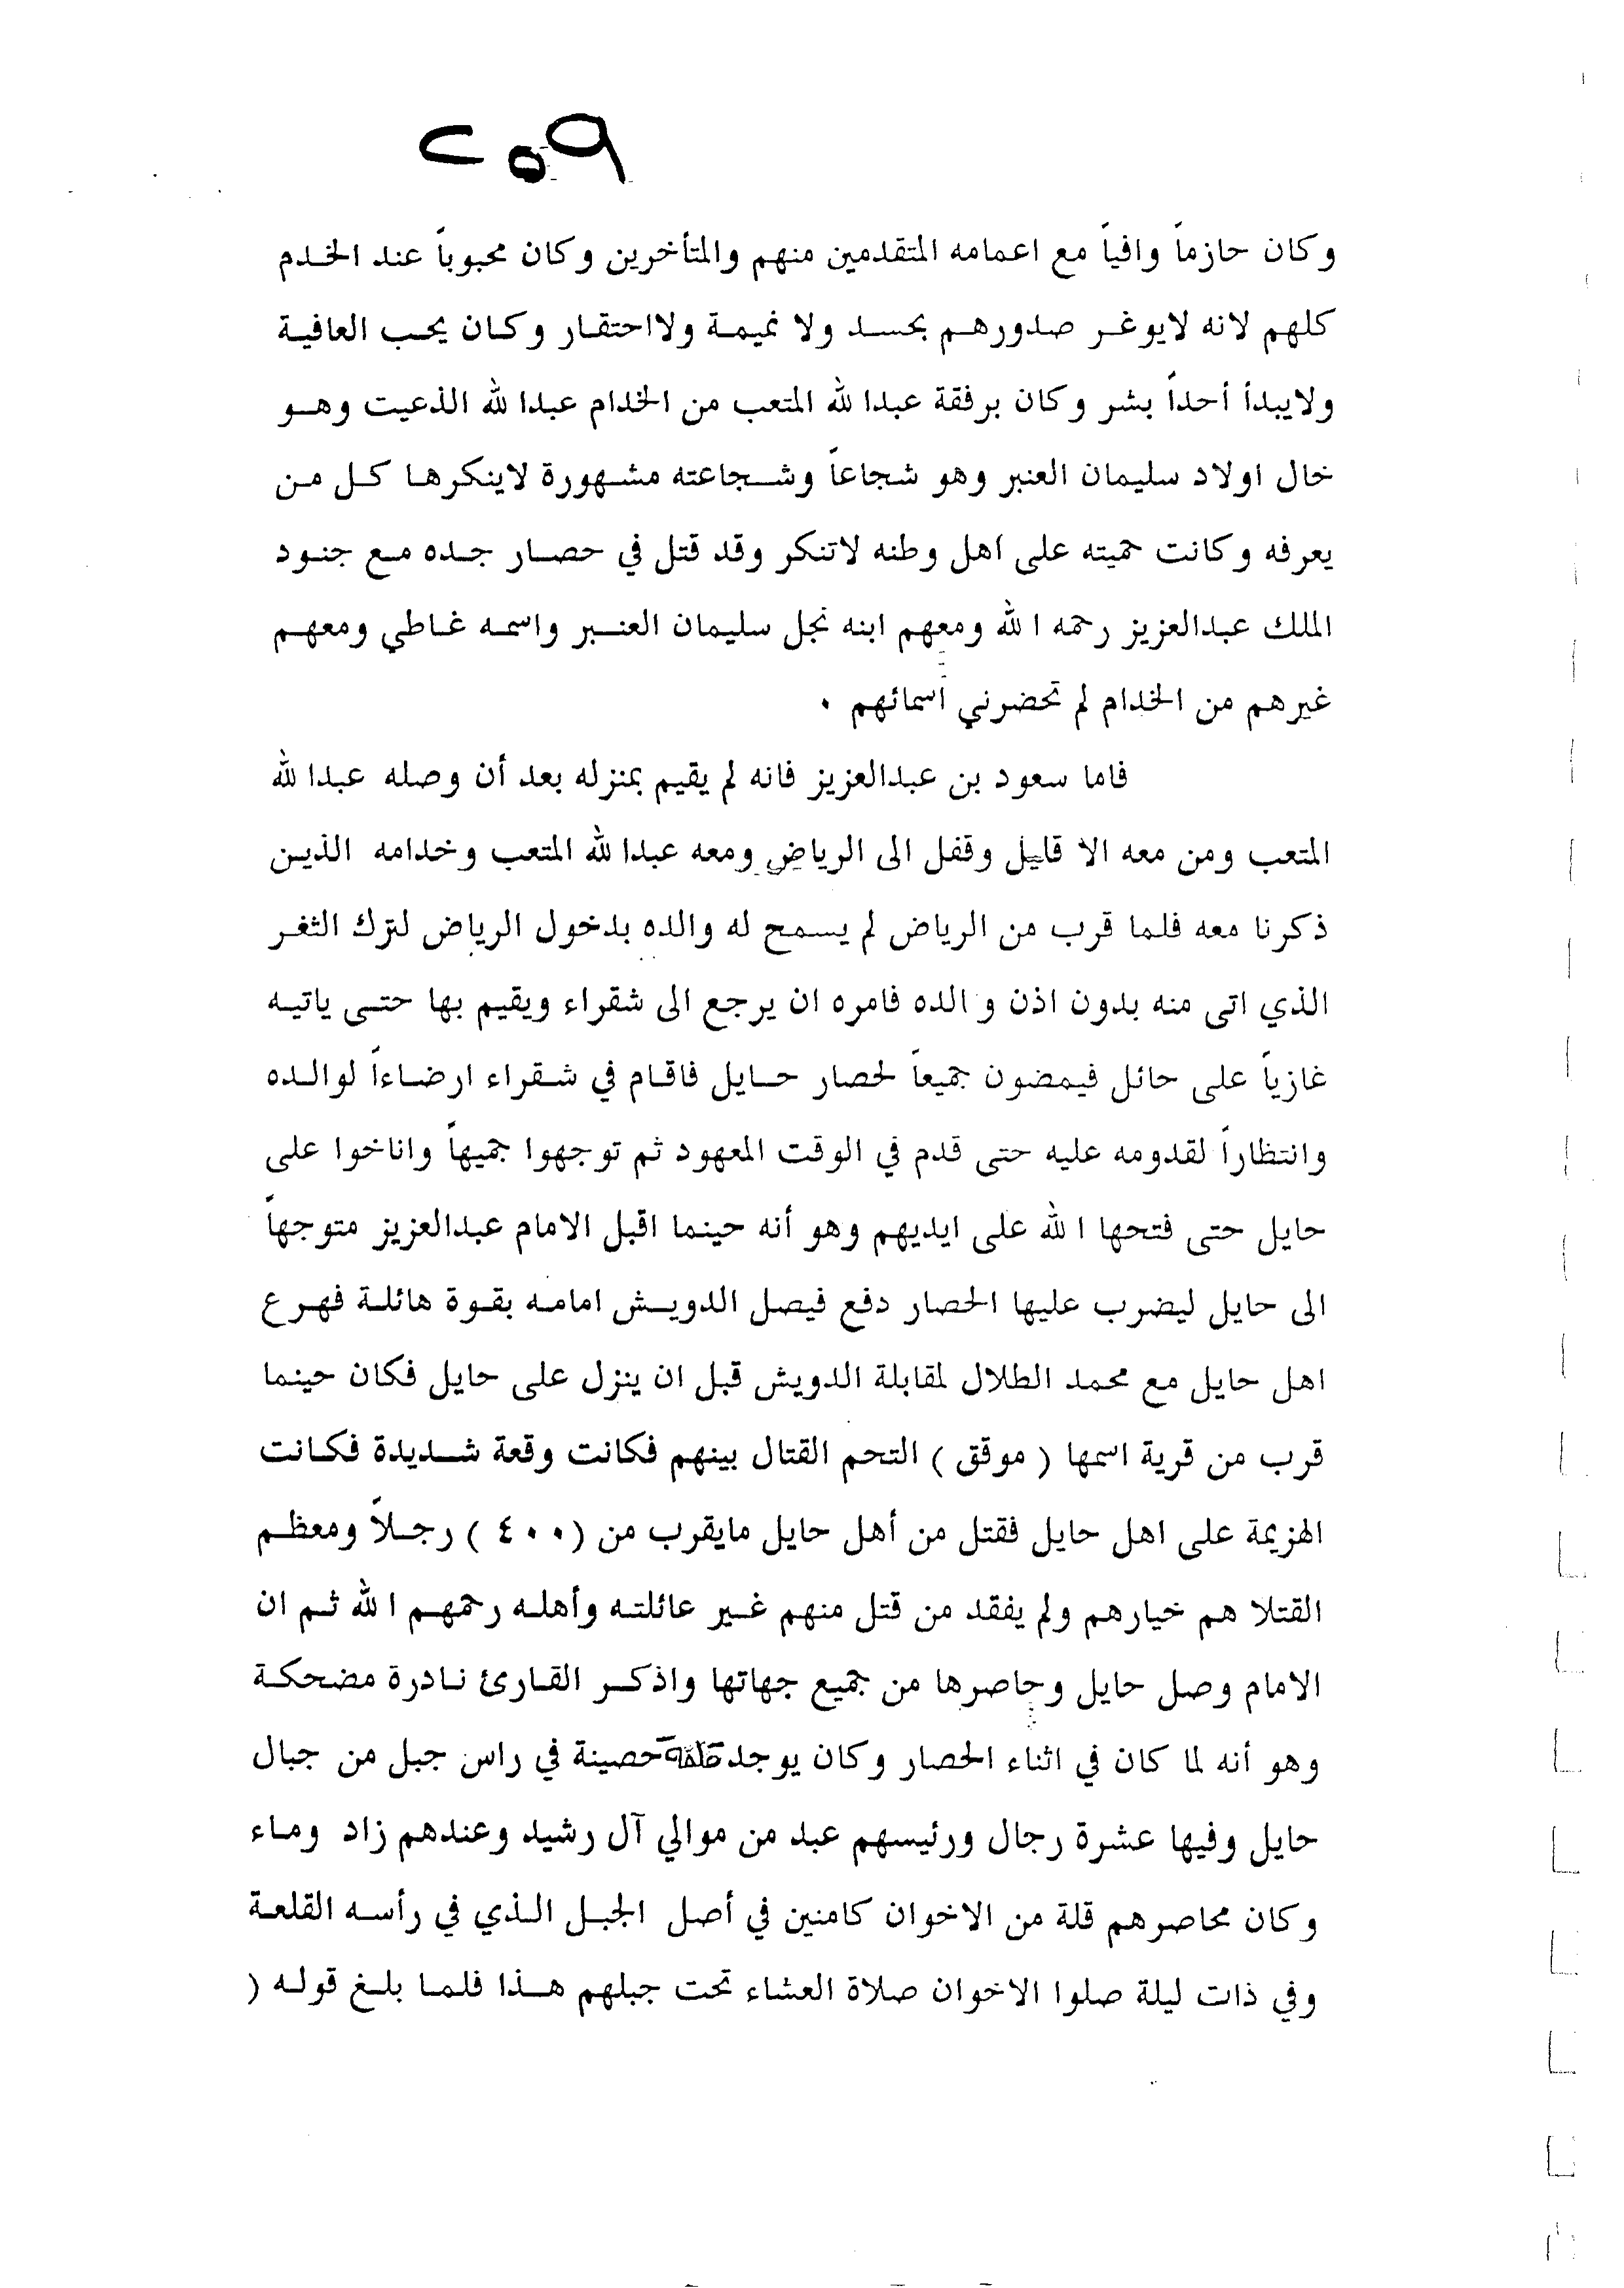 ٢٥٩
وكان حازماً وافياً مع اعمامه المتقدمين منهم والمتأخرين وكان محبوباً عند الخدم
كلهم لانه لايوغر صدورهم بحسد ولا نميمة ولااحتقار وكان يحب العافية
ولايبدأ أحداً بشر وكان برفقة عبدا لله المتعب من الخدام عبدا لله الذعيت وهو
خال اولاد سليمان العنبر وهو شجاعاً وشجاعته مشهورة لاينكرها كل من
يعرفه وكانت حميته على اهل وطنه لاتنكر وقد قتل في حصار جده مع جنود
الملك عبدالعزيز رحمه ا لله ومعهم ابنه نجل سليمان العنبر واسمه غاطي ومعهم
غيرهم من الخدام لم تحضرني اسمائهم .
فاما سعود بن عبدالعزيز فانه لم يقيم بمنزله بعد أن وصله عبدا لله
المتعب ومن معه الا قليل وقفل الى الرياض ومعه عبدا لله المتعب وخدامه الذين
ذكرنا معه فلما قرب من الرياض لم يسمح له والده بدخول الرياض لترك الثغر
الذي اتى منه بدون اذن والده فامره ان يرجع الى شقراء ويقيم بها حتى ياتيه
غازياً على حائل فيمضون جميعاً لحصار حايل فاقام في شقراء ارضاءاً لوالده
وانتظاراً لقدومه عليه حتى قدم في الوقت المعهود ثم توجهوا جميهاً واناخوا على
حايل حتى فتحها ا لله على ايديهم وهو أنه حينما اقبل الامام عبدالعزيز متوجهاً
الى حايل ليضرب عليها الحصار دفع فيصل الدويش امامه بقوة هائلة فهرع
اهل حايل مع محمد الطلال لمقابلة الدويش قبل ان ينزل على حايل فكان حينما
قرب من قرية اسمها ( موقق ) التحم القتال بينهم فكانت وقعة شديدة فكانت
الهزيمة على اهل حايل فقتل من أهل حايل مايقرب من (٤٠٠ ) رجلاً ومعظم
القتلا هم خيارهم ولم يفقد من قتل منهم غير عائلته وأهله رحمهم ا لله ثم ان
الامام وصل حايل وحاصرها من جميع جهاتها واذكر القارئ نادرة مضحكة
وهو أنه لما كان في اثناء الحصار وكان يوجد قلعة حصينة في راس جبل من جبال
حايل وفيها عشرة رجال ورئيسهم عبد من موالي آل رشيد وعندهم زاد وماء
وكان محاصرهم قلة من الاخوان كامنين في أصل الجبل الذي في رأسه القلعة
وفي ذات ليلة صلوا الاخوان صلاة العشاء تحت جبلهم هذا فلما بلغ قوله (